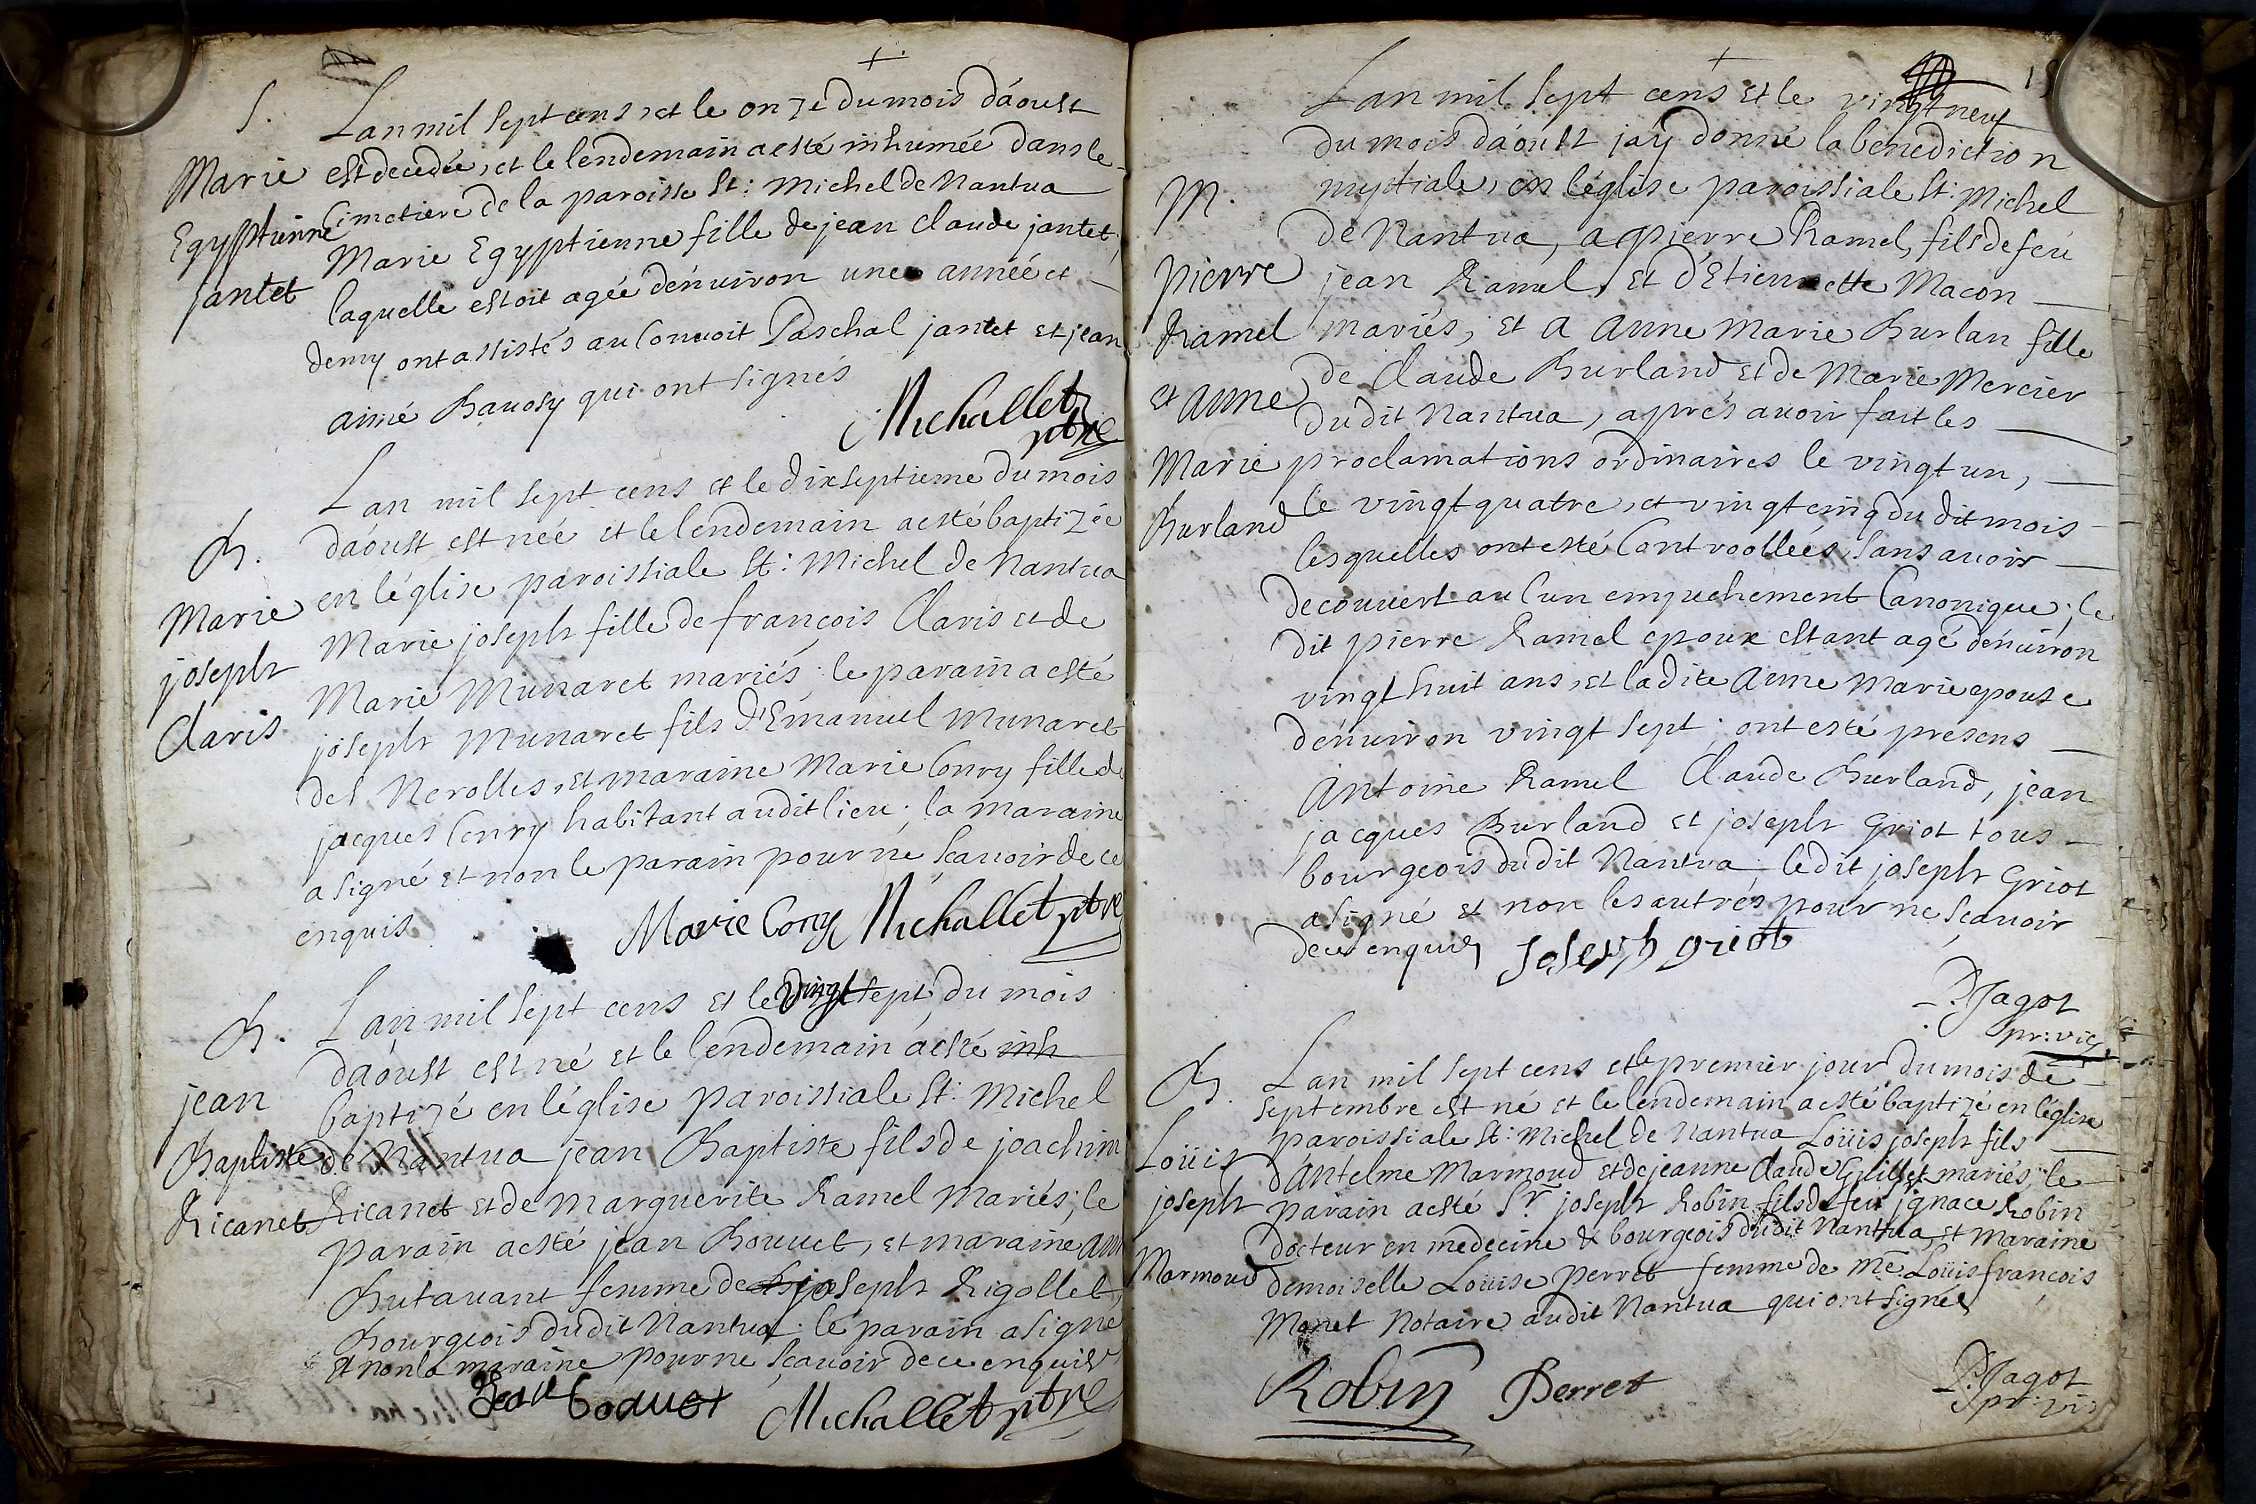 S.
Marie
Egyptienne
jantet
Lan mil sept cens, et le onze du mois d'aoust
est decedée, et le lendemain a esté inhumée dans le
Cimetiere de la paroisse St: Michel de Nantua
Marie Egyptienne fille de jean Claude jantet,
laquelle estoit agée d'enuiron une année et
demy ont assistés au Conuoit Paschal jantet et jean
aimé Bauosy qui ont signés
Michallet ptre
B.
Marie
joseph
Claris
Lan mil sept cens et le dixseptieme du mois
d'aoust est née et le lendemain a esté baptizée
en l'église paroissiale St: Michel de Nantua
Marie joseph fille de françois Claris et de
Marie Munaret mariés; le parain a esté
joseph Munaret fils d'Emanuel Munaret
des Nerolles, et maraine Marie Conry fille de
jacques Conry habitant audit lieu; la maraine
a signé et non le parain pour ne sçauoir de ce
enquis
Marie Cony Michallet ptre
B.
jean
Baptiste
Ricanet
Lan mil sept cens et le vingt sept du mois
d'aoust est né et le lendemain a esté inh
baptizé en l'église paroissiale St: Michel
de Nantua jean Baptiste fils de joachim
Ricanet et de Marguerite Ramel Mariés; le
parain a esté jean Bouuet, et maraine Ann
Butauant femme de joseph Rigollet,
Bourgeois dudit Nantua; le parain a signé
et non la maraine pour ne sçauoir de ce enquise
Jean boduet Michallet ptre
M.
pierre
Ramel
et Anne
Marie
Burland
Lan mil sept cens et le vingt neuf
du mois d'aoust jaÿ donné la benediction
nuptiale, en l'église paroissiale St: Michel
de Nantua, a pierre Ramel, fils de feu
jean Ramel, et d'Etiennette Macon
mariés; et a Anne Marie Burlan fille
de Claude Burland et de Marie Mercier
dudit Nantua, aprés auoir fait les
proclamations ordinaires le vingt un,
le vingt quatre, et vingt cinq du dit mois
lesquelles ont esté Controollees, sans auoir
decouuert aucun empechement Canonique; le
dit pierre Ramel epoux estant agé d'enuiron
vingt huit ans, et ladite Anne Marie epouse
d'enuiron vingt sept; ont esté presens
Antoine Ramel Claude Burland, jean
jacques Burland et joseph Griot tous
bourgeois dudit Nantua; ledit joseph Griot
a signé et non les autres pour ne sçauoir
de ce enquis Joseph griot
P. Jagot
pr: vic
B.
Loüis
joseph
Marmoud
Lan mil sept cens et le premier jour du mois de
septembre est né et le lendemain a esté baptizé en l'église
paroissiale St: Michel de Nantua Loüis joseph fils
d'Antelme Marmoud et de jeanne Claude Guillet mariés; le
parain a esté Sr. joseph Robin fils de feu jgnace Robin
docteur en medecine & bourgeois dudit Nantua, et maraine
demoiselle Loüise perret femme de Me. Loüis françois
Monet Notaire audit Nantua qui ont signés
Robin Perret
P. Jagot
pr: vi